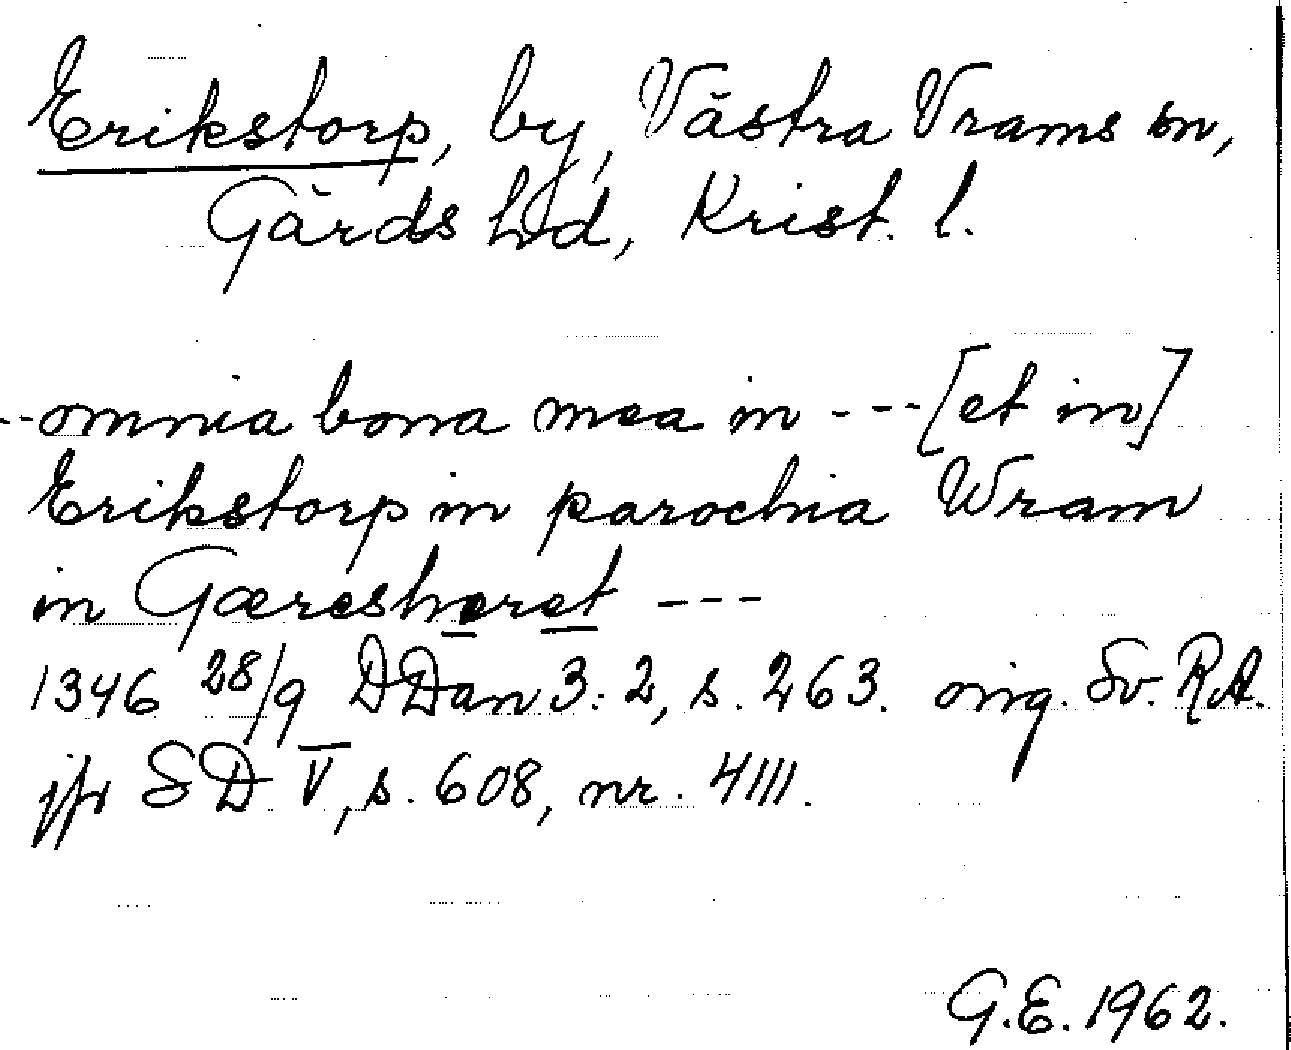 Erikstorp, by, Västra Vrams sn,
Gärds hd, Krist. l.
--omnia bona mea in ---[et in]
Erikstorp in parochia Wram
in Gæresheret ---
1346 28/9 DDan 3:2, s. 263. orig. Sv. RA.
jfr SD V, s. 608, nr. 4111.
G.E. 1962.